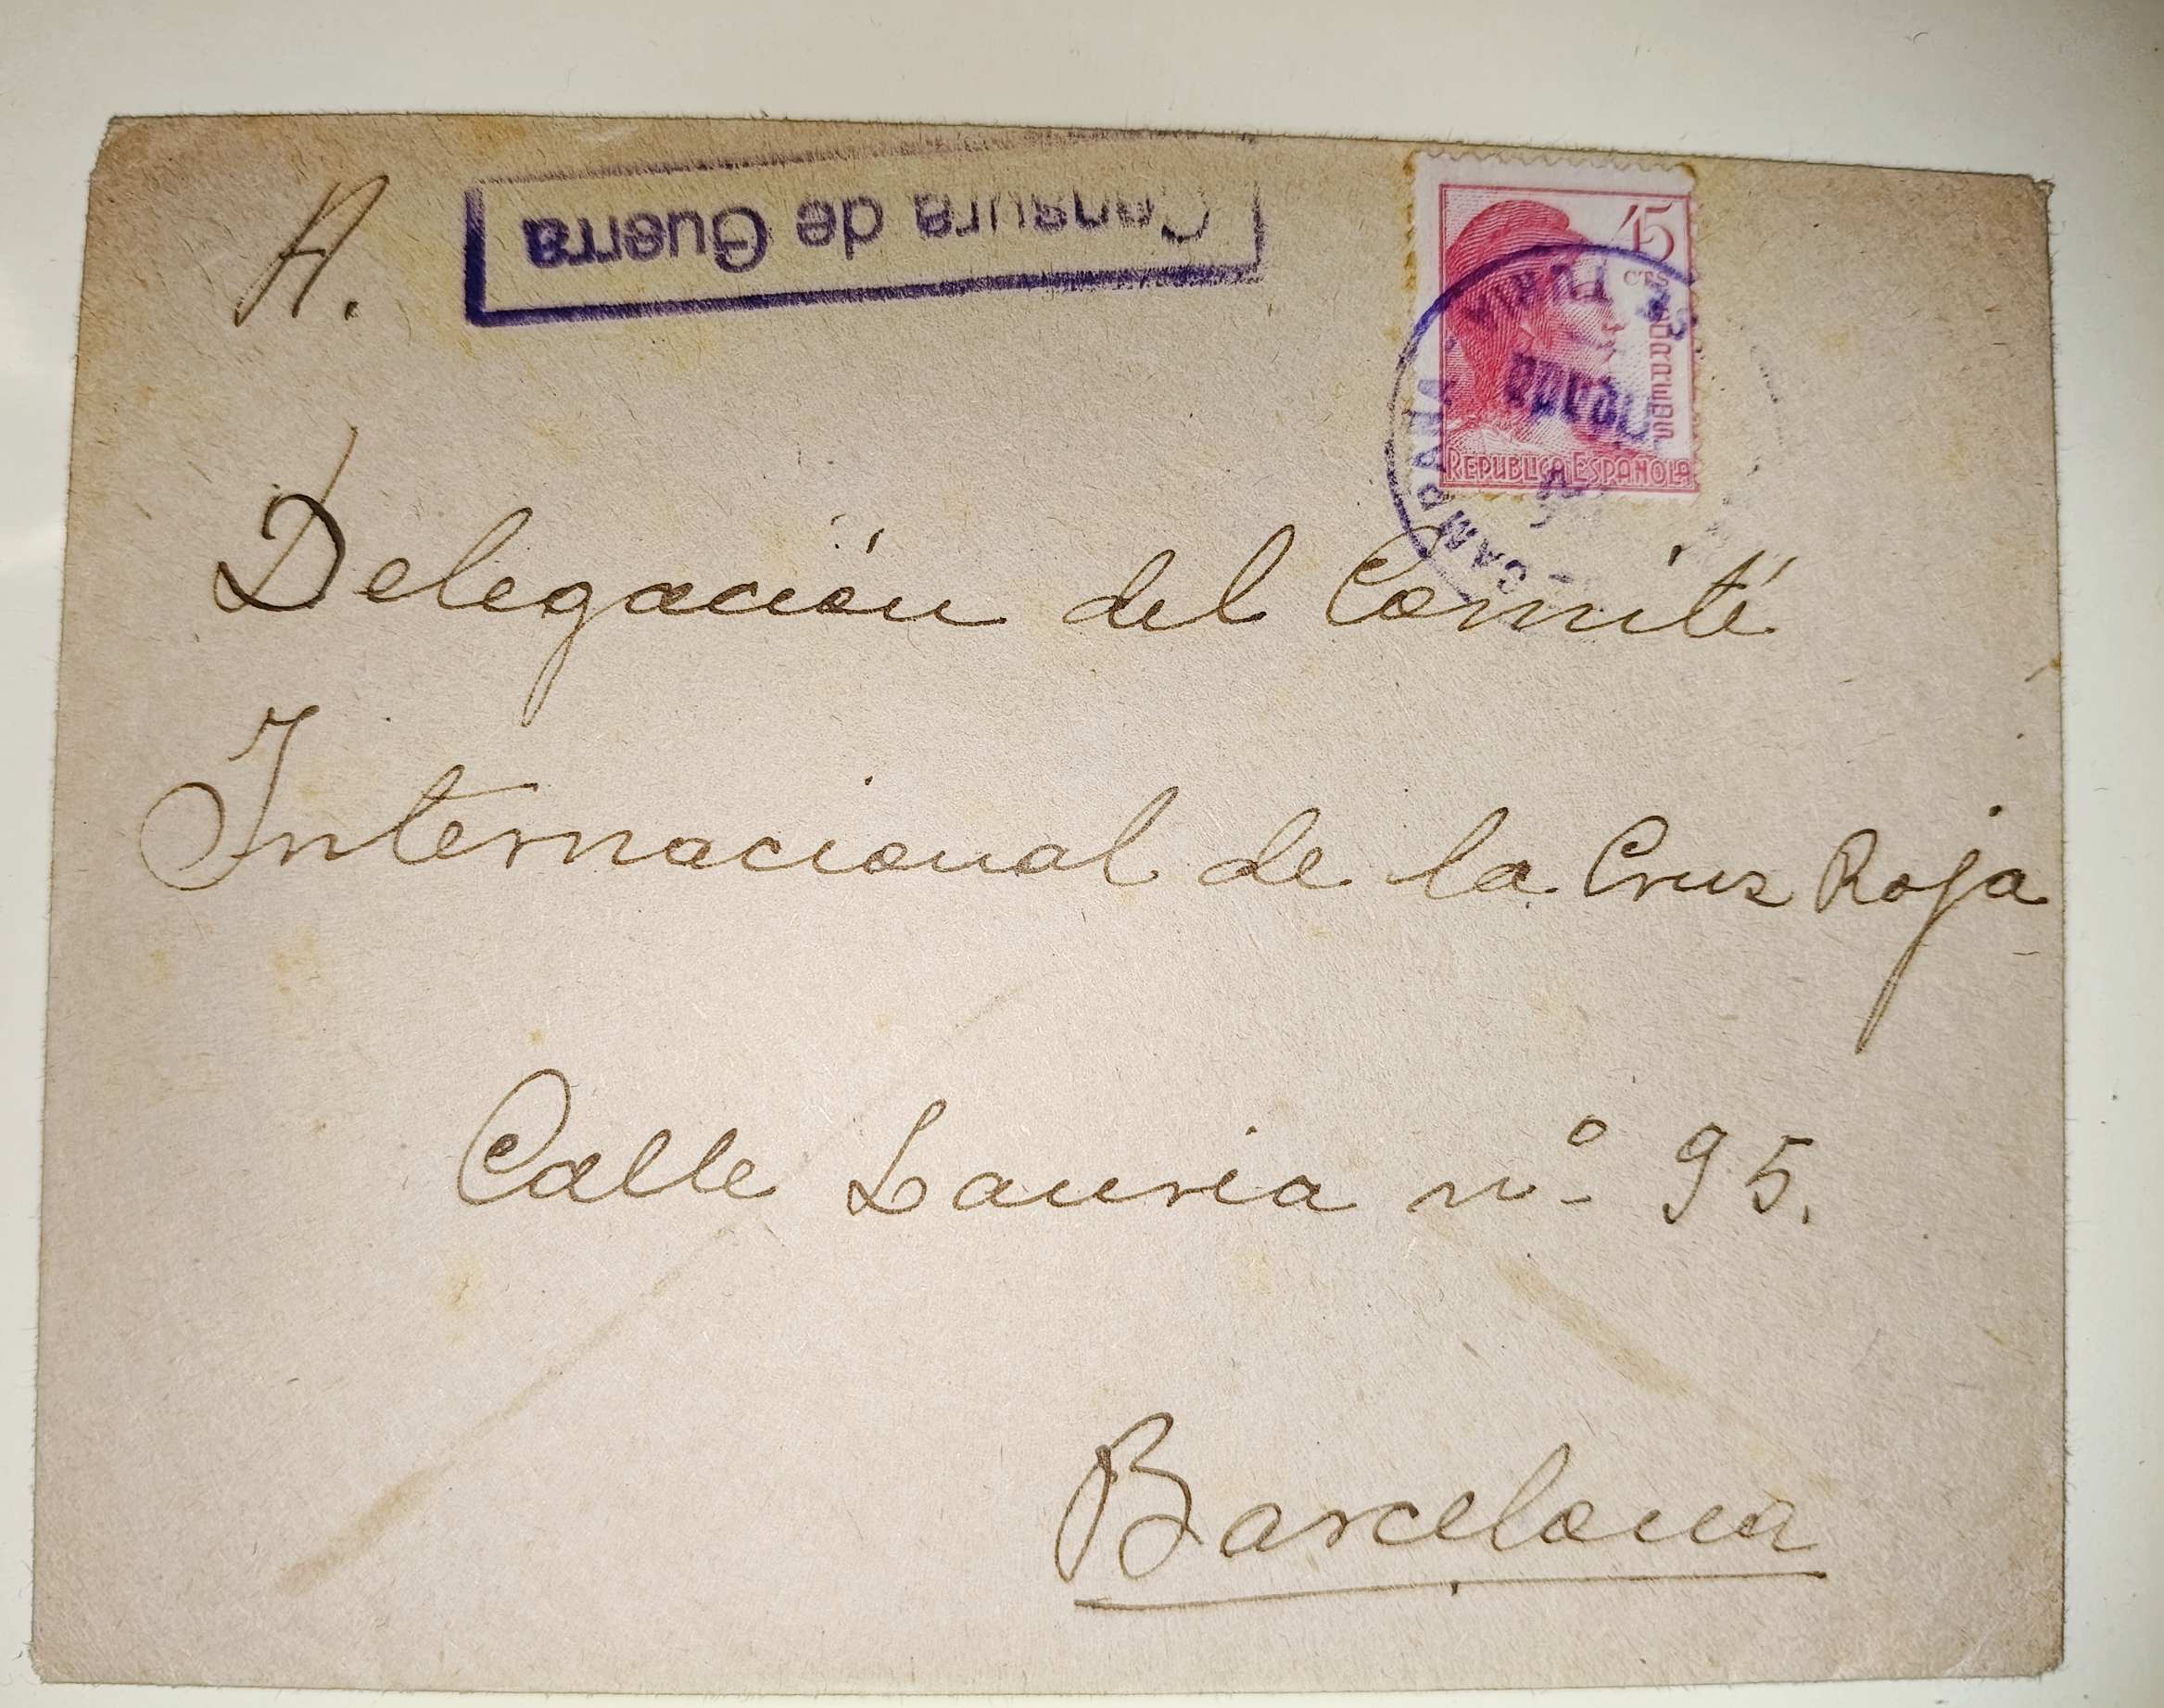 A.
Censura de Guerra
45
CTS
CORREOS
REPUBLICA ESPAÑOLA
CAMPANA
Delegación del Comité
Internacional de la Cruz Roja
Calle Lauria nº 95.
Barcelona